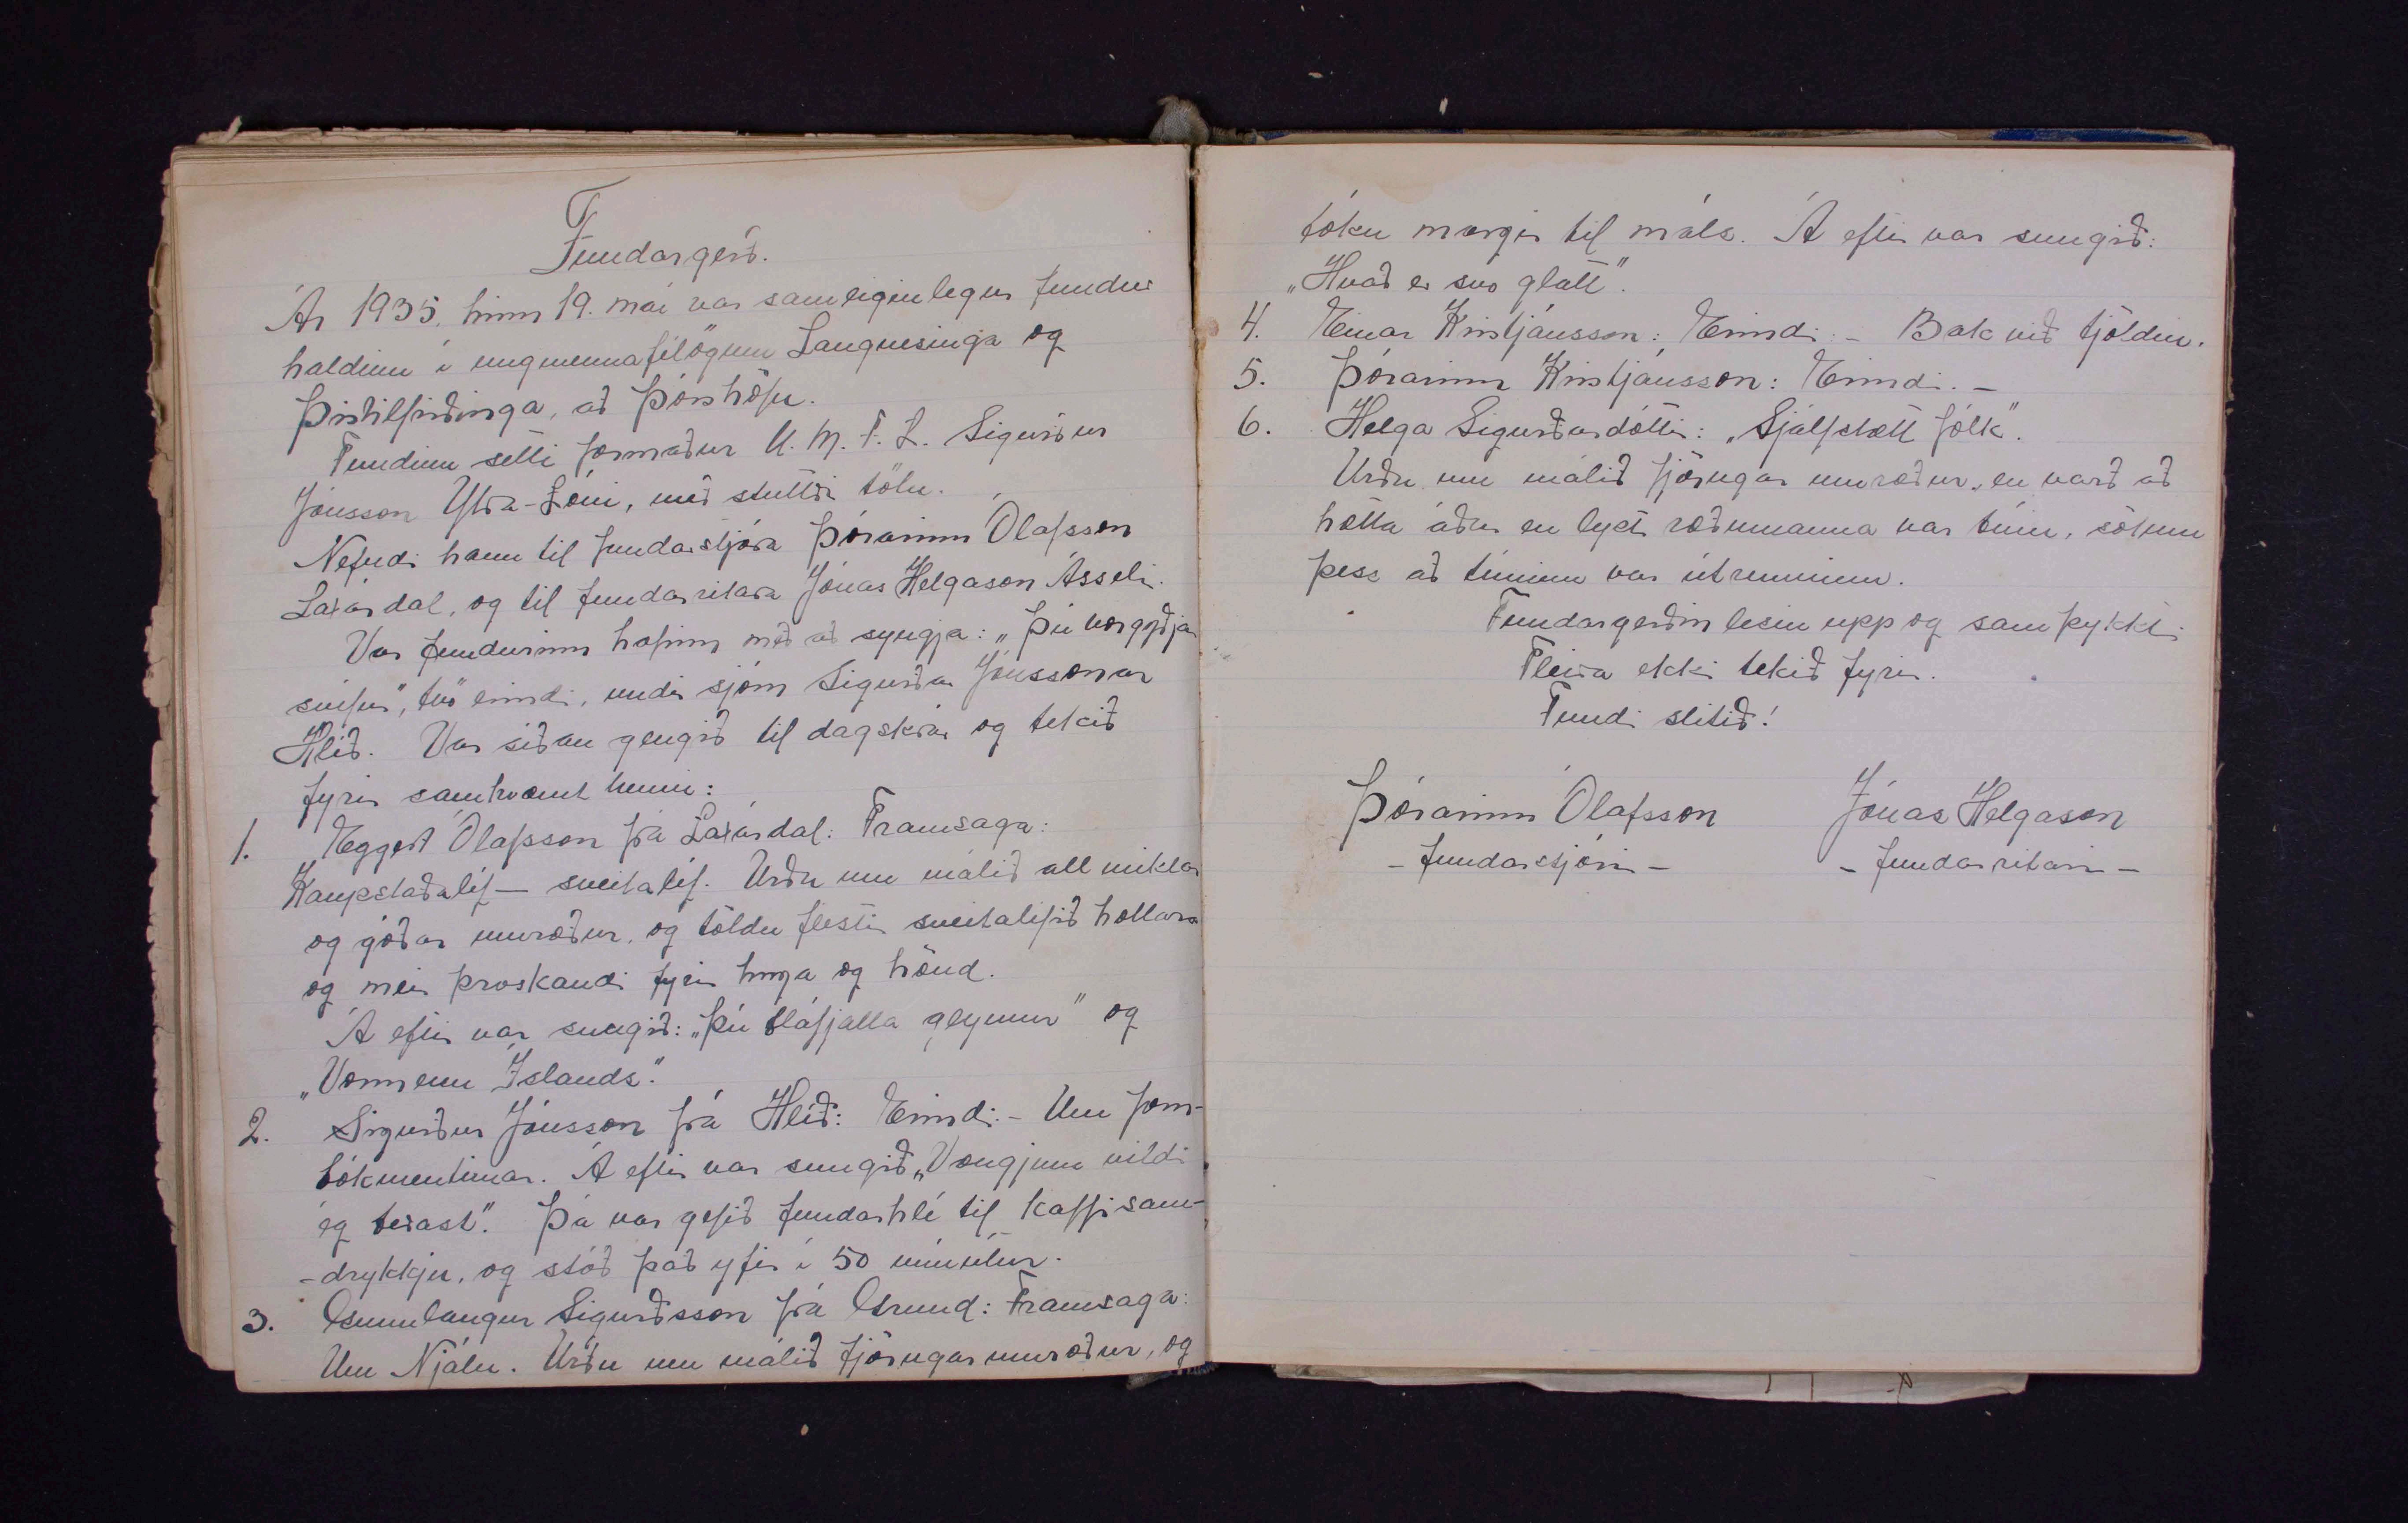 Fundargerð.
Ár 1935, hinn 19. maí var sameiginlegur fundur
haldinn í ungmennafélögum Langnesinga og
Þistilfirðinga, að Þórshöfn.
Fundinn setti formaður U. M. F. L. Sigurður
Jónsson Ytra-Lóni, með stuttri tölu.
Nefndi hann til fundarstjóra Þórarinn Ólafsson
Laxárdal, og til fundarritara Jónas Helgason Ásseli.
Var fundurinn hafinn með að syngja: „Þú vorgyðja
svífur", tvö erindi, undir stjórn Sigurðar Jónssonar
Hlíð. Var síðan gengið til dagskrár og tekið
fyrir samkvæmt henni:
1. Eggert Ólafsson frá Laxárdal: Framsaga:
Kaupstaðalíf — sveitalíf. Urðu um málið all miklar
og góðar umræður, og töldu flestir sveitalífið hollara
og meir þroskandi fyrir huga og hönd.
Á eftir var sungið: „Þú bláfjalla geymur" og
„Vormenn Íslands".
2. Sigurður Jónsson frá Hlíð: Erindi. - Um forn-
bókmentirnar. Á eftir var sungið „Vængjum vildi
ég berast". Þá var gefið fundarhlé til kaffisam-
-drykkju, og stóð það yfir í 50 mínútur.
3. Gunnlaugur Sigurðsson frá Grund: Framsaga:
Um Njálu. Urðu um málið fjörugar umræður, og
tóku margir til máls. Á eftir var sungið:
„Hvað er svo glatt".
4. Einar Kristjánsson: Erindi: - Bak við tjöldin.
5. Þórarinn Kristjánsson: Erindi. -
6. Helga Sigurðardóttir: „Sjálfstætt fólk".
Urðu um málið fjörugar umræður, en varð að
hætta áður en lyst ræðumanna var búin, sökum
þess að tíminn var útrunninn.
Fundargerðin lesin upp og samþykkt.
Fleira ekki tekið fyrir.
Fundi slitið!
Þórarinn Ólafsson Jónas Helgason
- fundarstjóri - - fundarritari -